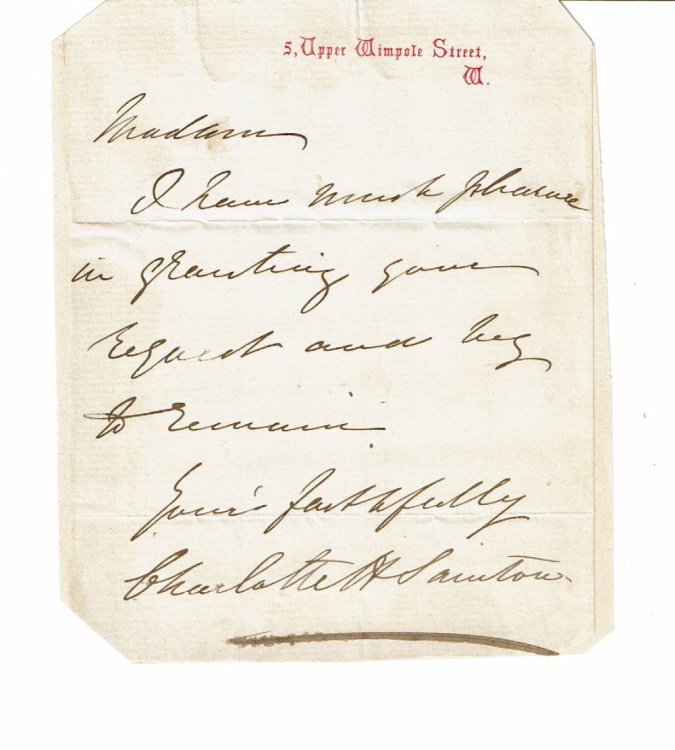 5, Upper Wimpole Street,
W.
Madam
I have much pleasure
in granting your
request and beg
to remain
Your's faithfully
Charlotte H Sainton